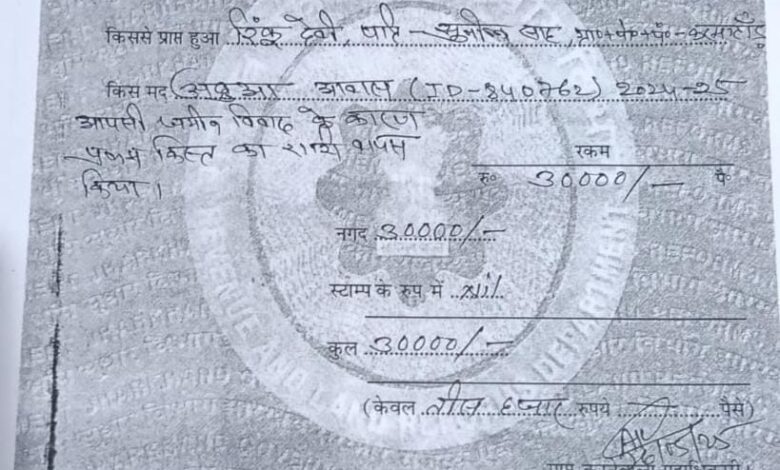 किससे प्राप्त हुआ रिंकू देवी, पति - सुनील साह, ग्रा०+पो०+पं०-करमाटाँड़
किस मद अबुआ आवास (ID-840762) 2024-25
आपसी जमीन विवाद के कारण
प्रथम किस्त का राशि वापस
किया।
रकम
रु० 30000/- पै०
नगद 30000/-
स्टाम्प के रुप में Nil
कुल 30000/-
(केवल तीस हजार रुपये पैसे)